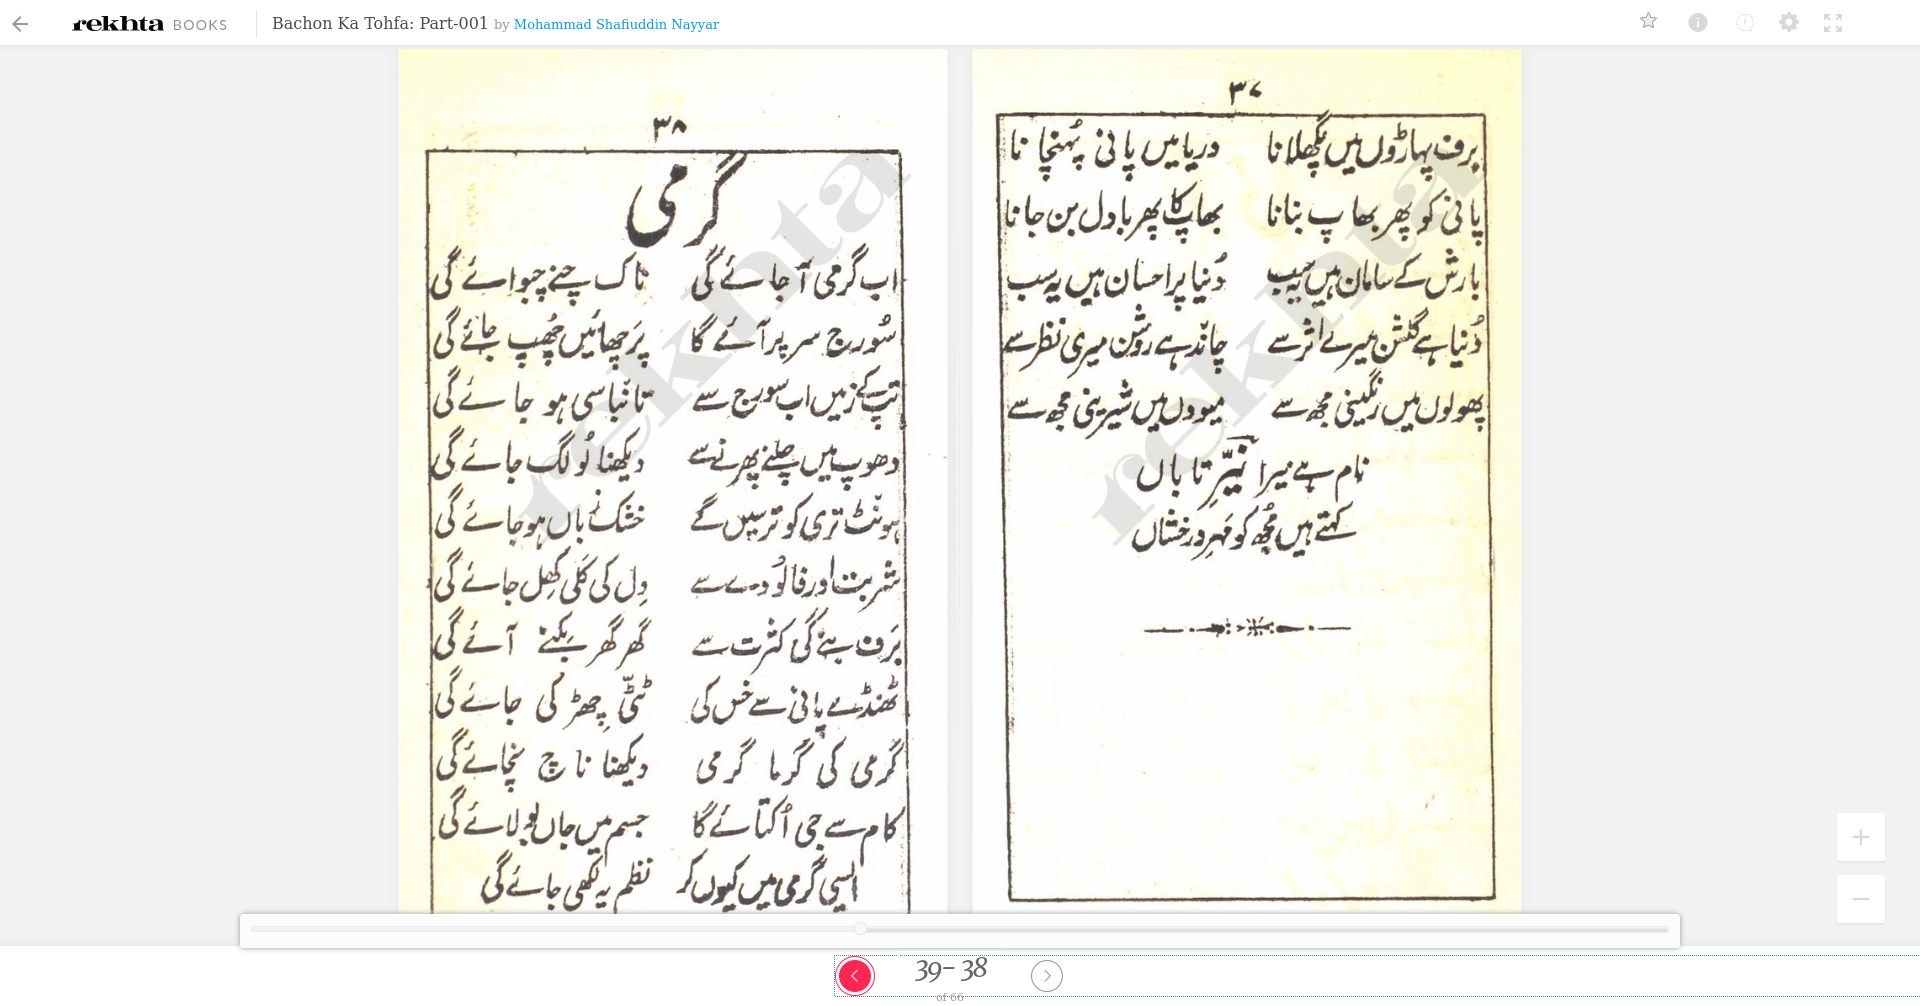 rekhta BOOKS
Bachon Ka Tohfa: Part-001 by Mohammad Shafiuddin Nayyar
۳۷
برف پہاڑوں میں پگھلانا دریا میں پانی پہُنچانا
پانی کو پھر بھاپ بنانا بھاپ کا پھر بادل بن جانا
بارش کے سامان ہیں یہ سب دُنیا پر احسان ہیں یہ سب
دُنیا ہے گلشن میرے اثر سے چاند ہے روشن میری نظر سے
پھولوں میں رنگینی مجھ سے میووں میں شیرینی مجھ سے
نام ہے میرا نیّرِ تاباں
کہتے ہیں مجُھ کو مَہرِ درخشاں
۳۸
گرمی
اب گرمی آ جائے گی ناک چنے چبوائے گی
سُورج سر پر آئے گا پَرچھائیں چھُپ جائے گی
تپ کے زمیں اب سورج سے تانبا سی ہو جائے گی
دھوپ میں چلنے پھرنے سے دیکھنا لُو لگ جائے گی
ہونٹ تری کو ترسیں گے خشک زباں ہو جائے گی
شربت اور فالُودے سے دِل کی کَلی کھِل جائے گی
بَرف بنے گی کثرت سے گھر گھر بِکنے آئے گی
ٹھنڈے پانی سے خس کی ٹٹّی چھِڑکی جائے گی
گرمی کی گرما گرمی دیکھنا ناچ نچائے گی
کام سے جی اُکتائے گا جسم میں جاں بولائے گی
ایسی گرمی میں کیوں کر نظم یہ لکھی جائے گی
rekhta
rekhta
39- 38
of 66